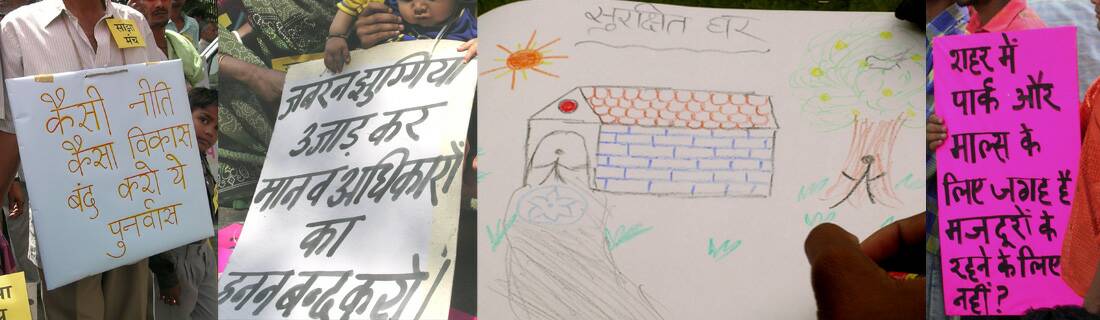 साझा
मंच
कैसी नीति
कैसा विकास
बंद करो ये
पुर्नवास
जबरन झुग्गियां
उजाड़ कर
मानव अधिकारों
का
हनन बन्द करो!
सुरक्षित घर
शहर में
पार्क और
माल्स के
लिए जगह है
मजदूरों के
रहने के लिए
नहीं?